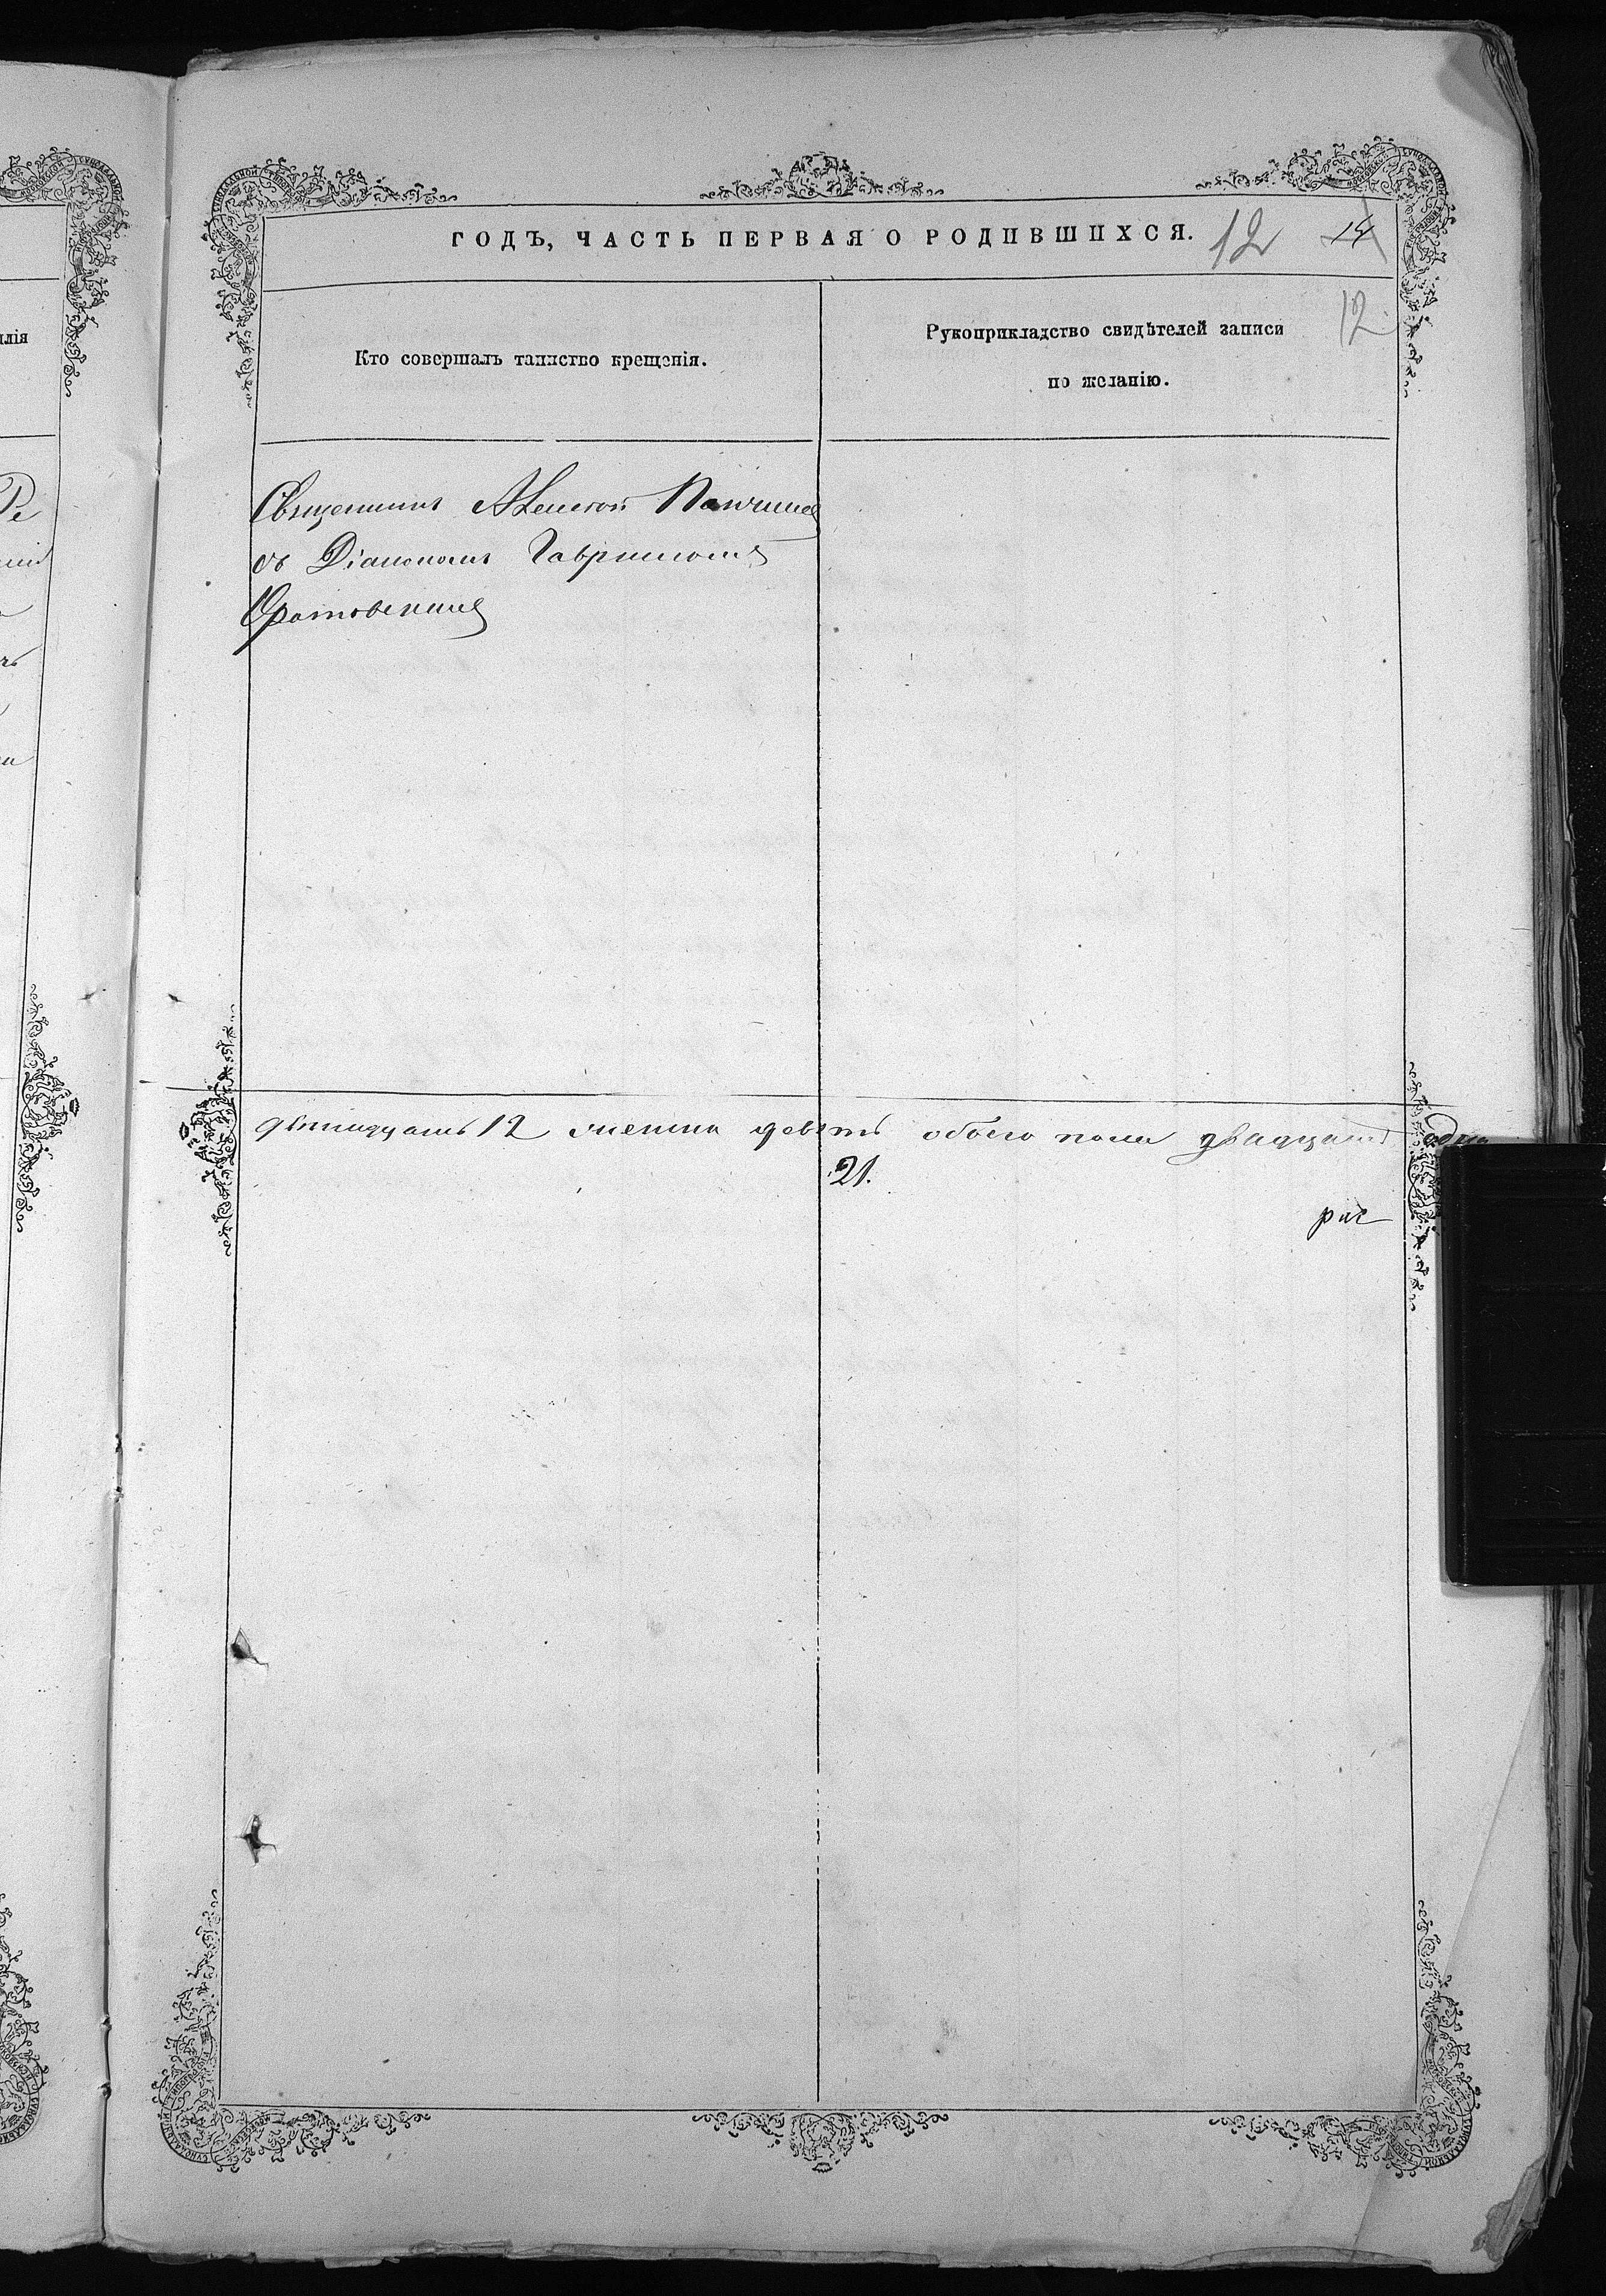 ГОДЪ, ЧАСТЬ ПЕРВАЯ О РОДИВШИХСЯ. 12 14
12
Кто совершалъ таинство крещенія.
Рукоприкладство свидѣтелей записи
по желанію.
Священникъ Алексѣй
съ Діакономъ Гавріиломъ
двѣнадцать 12 женска девять обоего пола двадцать одна
21.
лія